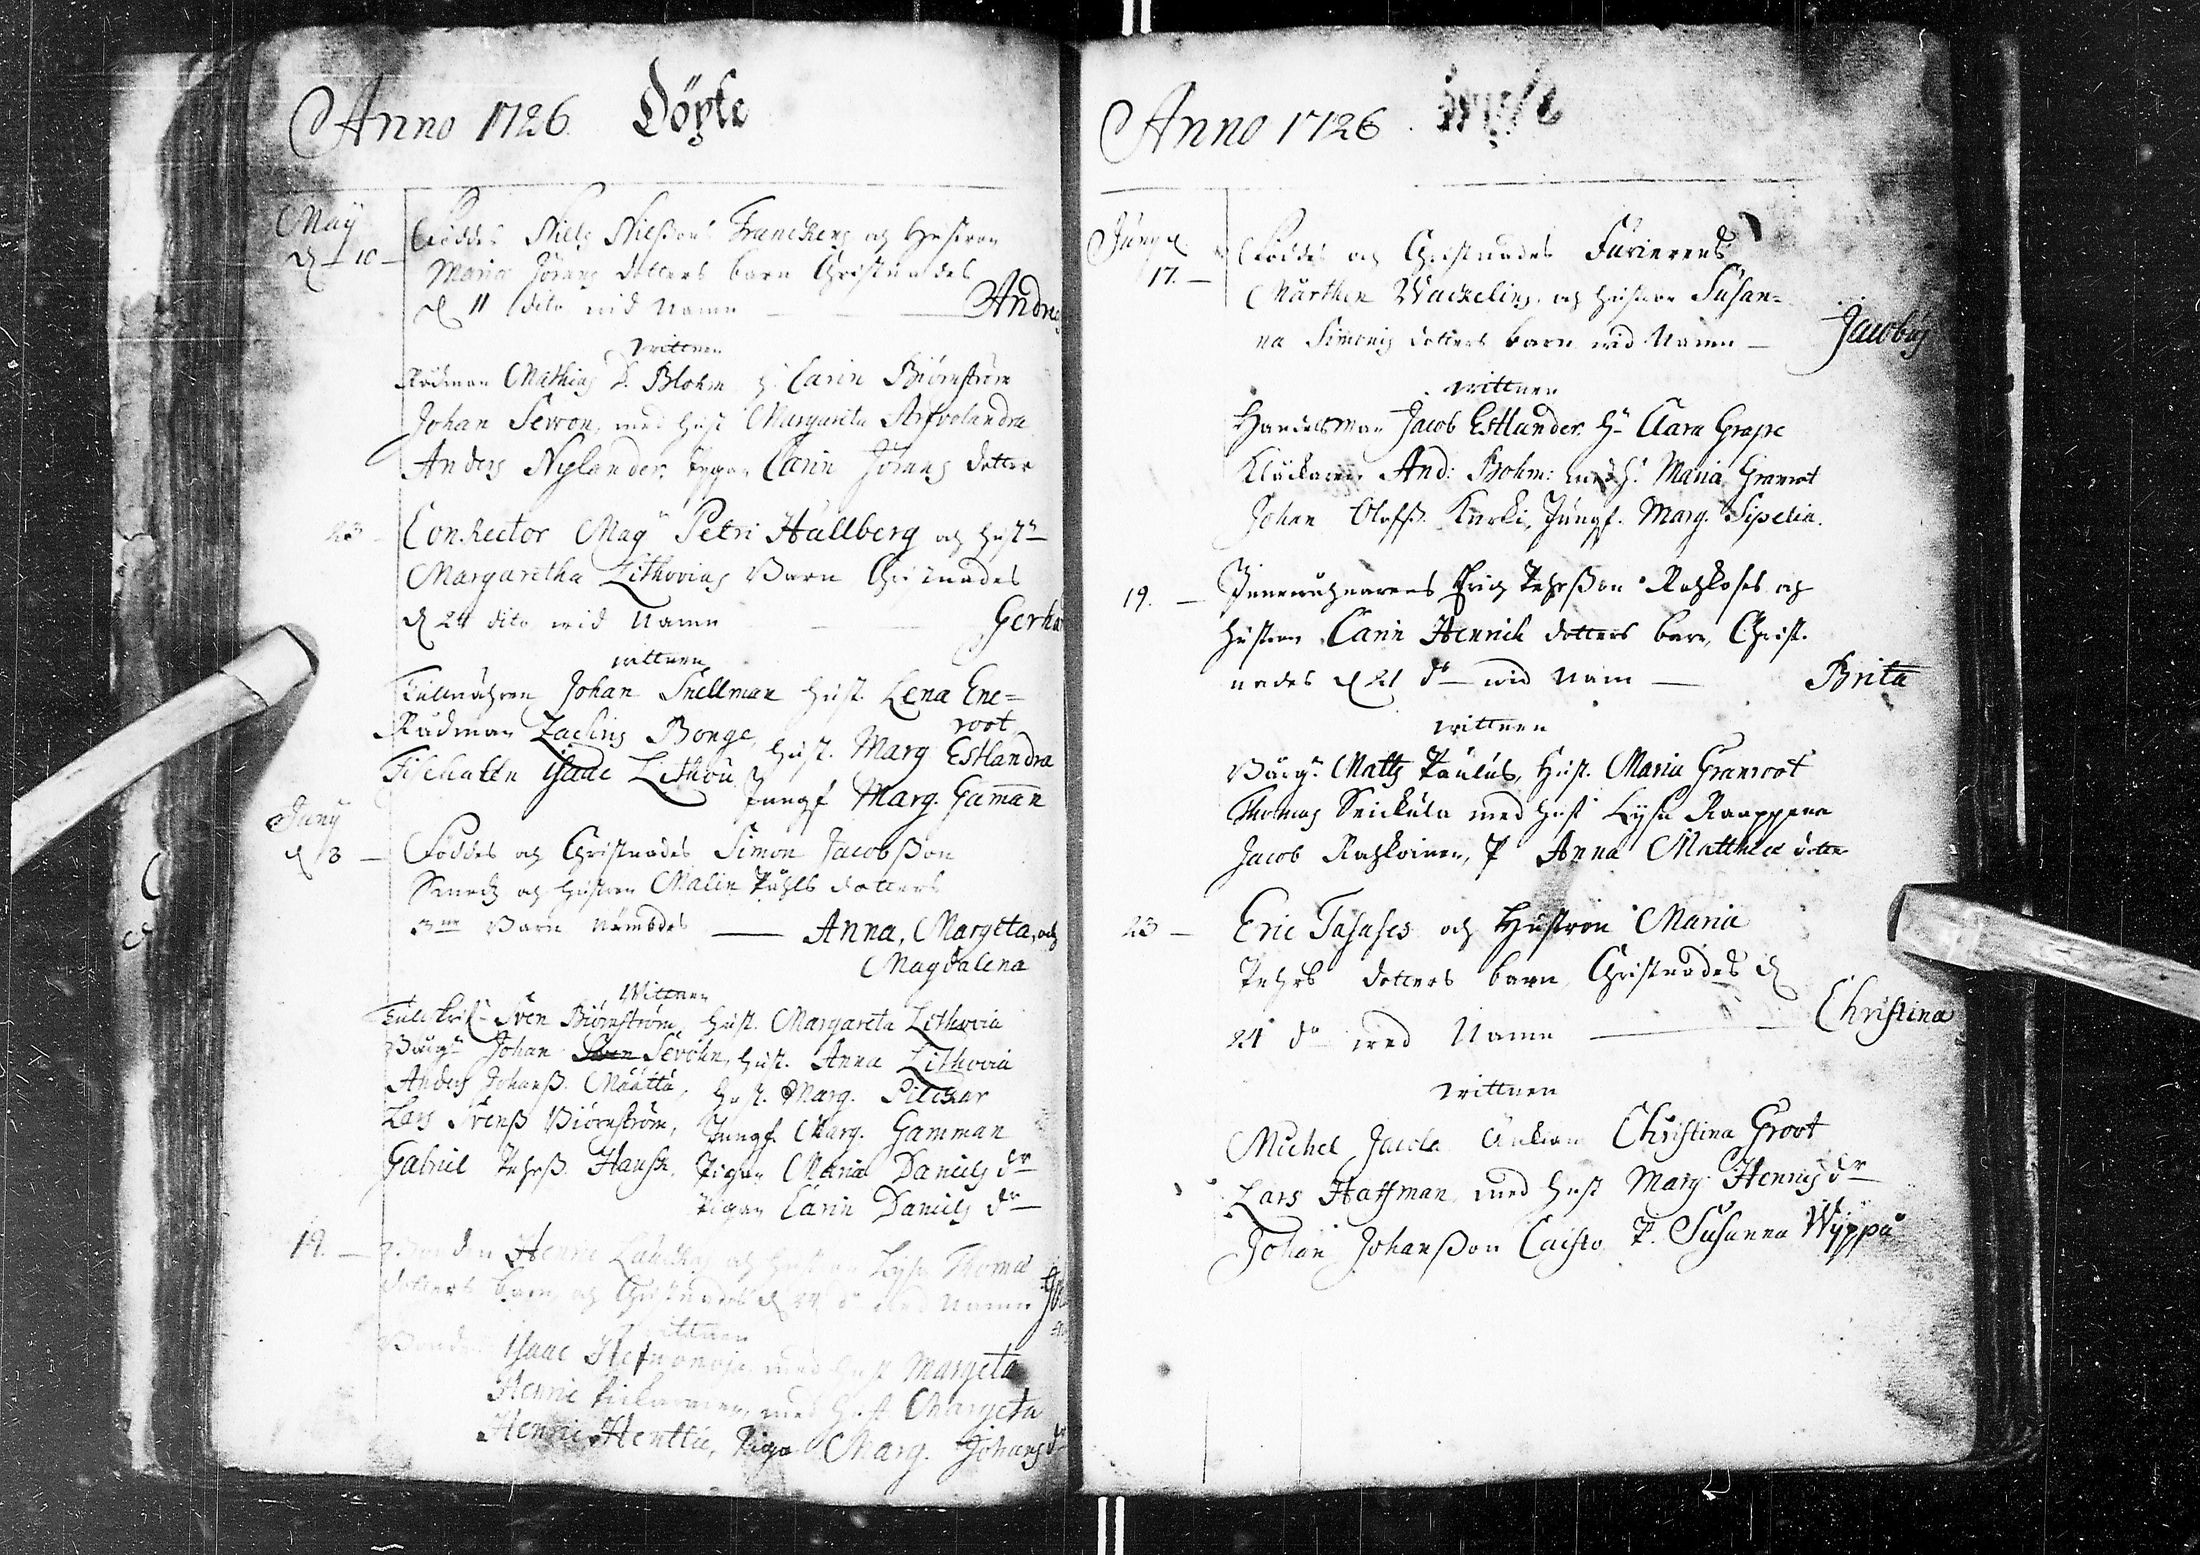 Anno 1726. Döpte
May
d 10 Föddes Nils Nilsons Franckens och Hustron
Maria Jörans dotters barn Christnades
d 11 dito wid Namn — Andre
wittnen
Rådman Mathias D. Blohm H. Carin Biörnström
Johan Sevon, med Hust Margareta Arfvolandra
Anders Nylander, Pigan Carin Jörans dotter
23 — Con-Rector Magr Petri Hållberg och Hustn
Margaretha Lithovias Barn Christnades
d 24 dito wid Namn — Gerha
wittnen
Johan Snellman Hust. Lena Ene=
root
Rådman Zachris Bonge, Hust. Marg Estlandra
Isaac Lithou Jungf Marg. Gamān
Juny
d 8 — Föddes och Christnades Simon Jacobßon
och Hustron Malin Påhls dotters
3ne Barn Nämbdes — Anna, Margeta, och
Magdalena
Wittnen
Sven Biörnström, Hust. Margareta Lithovia
Borgr Johan Sevohn, Hust. Anna Lithovia
Anders Johanß. Määttä, Hust. Marg. Pilckar
Lars Svenß Biörnström, Jungf. Marg. Gamman
Gabriel Pehrß. Pigan Maria Daniels dr
Pigan Carin Daniels dr
19. — Henric och Hustron Lysa Thomæ
dotters barn, och Christnades d dr wid Namn
wittnen
Bonden Isaac med Hust Margeta
Henric med Hust Margeta
Henric Herttu, Piga Marg. Johans dr
Anno 1726. Döpte
Juny d
17. — Föddes och Christnades Furierens
Mårthen Wackelins och Hustron Susan=
na Simons dotters barn wid Namn — Jacobus
wittnen
Handelsman Jacob Estlander. Hu Clara Grape
Klåckaren And: Bohm: med H. Maria Granroot
Johan Olofß. Kurki, Jungf. Marg. Sipelia.
19. — Erich Pehrßon och
Hustron Carin Henrich dotters barn, Christ-
nades d 21 do wid Nam — Brita
wittnen
Borgr Matts Paulus, Hust. Maria Granroot
Thomas med Hust Lysa Raappana
Jacob P Anna Matthiæ dotter
23 — Eric Tasases och Hustron Maria
Pehrs dotters barn Christnades d
24 do wed Namn — Christina
wittnen
Michel Jacob Änkian Christina Groot
Lars Haffman med Hust Marg. Henrics dr
Johan Johanßon Caisto P. Susanna Wyppa